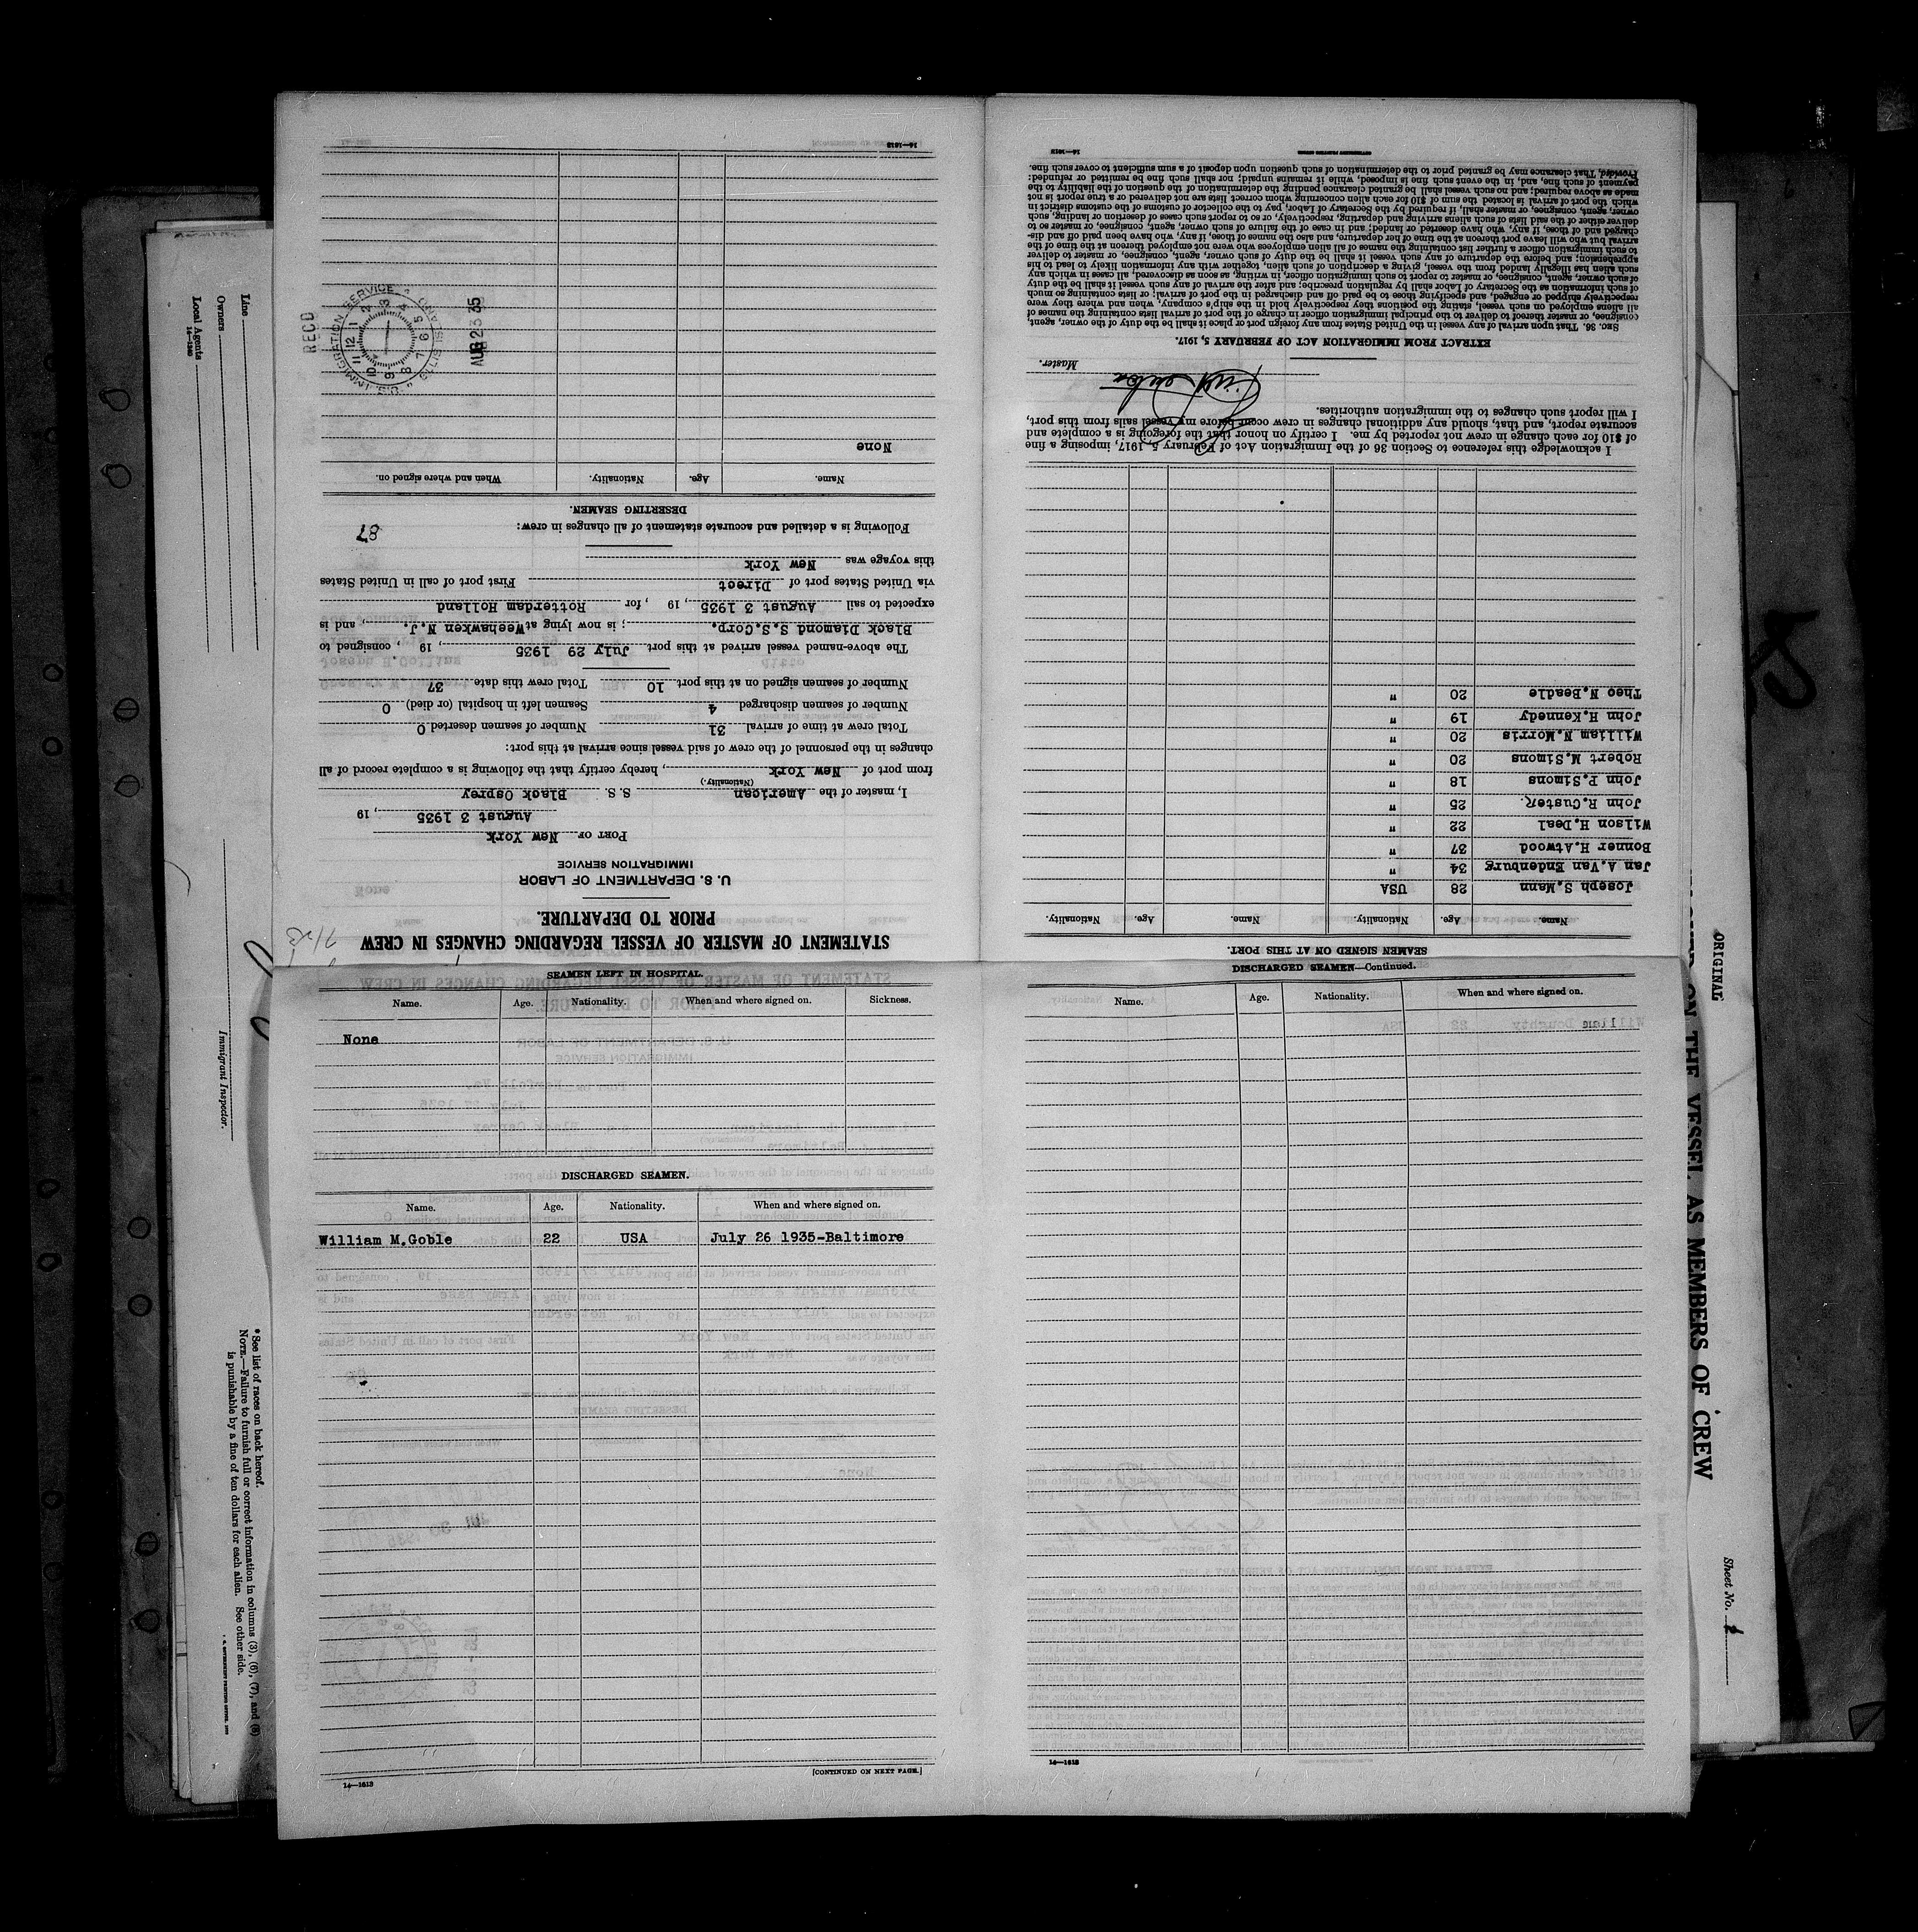 STATEMENT OF MASTER OF VESSEL REGARDING CHANGES IN CREW
PRIOR TO DEPARTURE.
U. S. DEPARTMENT OF LABOR
IMMIGRATION SERVICE
PORT OF New York
August 3 1935, 19
I, master of the American S. S. Black Osprey
(Nationality.)
from port of New York, hereby certify that the following is a complete record of all
changes in the personnel of the crew of said vessel since arrival at this port:
Total crew at time of arrival 31 Number of seamen deserted 0
Number of seamen discharged 4 Seamen left in hospital (or died) 0
Number of seamen signed on at this port 10 Total crew this date 37
The above-named vessel arrived at this port July 29 1935, 19 , consigned to
Black Diamond S.S.Corp. ; is now lying at Weehawken N.J., and is
expected to sail August 3 1935, 19 , for Rotterdam Holland
via United States port of Direct First port of call in United States
this voyage was New York
87
Following is a detailed and accurate statement of all changes in crew:
DESERTING SEAMEN.
Name. Age. Nationality. When and where signed on.
None
REC'D
U.S. IMMIGRATION SERVICE ELLIS ISLAND
AUG 23 35
14—1613
SEAMEN LEFT IN HOSPITAL.
Name. Age. Nationality. When and where signed on. Sickness.
None
DISCHARGED SEAMEN.
Name. Age. Nationality. When and where signed on.
William M.Goble 22 USA July 26 1935-Baltimore
[CONTINUED ON NEXT PAGE.]
14—1613
DISCHARGED SEAMEN—Continued.
Name. Age. Nationality. When and where signed on.
14—1613
SEAMEN SIGNED ON AT THIS PORT.
Name. Age. Nationality. Name. Age. Nationality.
Joseph S.Mann 28 USA
Jan A.Van Endenburg 34 "
Bonner H.Atwood 37 "
Wilson H.Deal 22 "
John R.Custer. 25 "
John P.Simons 18 "
Robert M.Simons 20 "
William N.Morris 20 "
John H.Kennedy 19 "
Theo N.Beadle 20 "
I acknowledge this reference to Section 36 of the Immigration Act of February 5, 1917, imposing a fine
of $10 for each change in crew not reported by me. I certify on honor that the foregoing is a complete and
accurate report, and that, should any additional changes in crew occur before my vessel sails from this port,
I will report such changes to the immigration authorities.
Master.
EXTRACT FROM IMMIGRATION ACT OF FEBRUARY 5, 1917.
SEC. 36. That upon arrival of any vessel in the United States from any foreign port or place it shall be the duty of the owner, agent,
consignee, or master thereof to deliver to the principal immigration officer in charge of the port of arrival lists containing the names of
all aliens employed on such vessel, stating the positions they respectively hold in the ship's company, when and where they were
respectively shipped or engaged, and specifying those to be paid off and discharged in the port of arrival; or lists containing so much
of such information as the Secretary of Labor shall by regulation prescribe; and after the arrival of any such vessel it shall be the duty
of such owner, agent, consignee, or master to report to such immigration officer, in writing, as soon as discovered, all cases in which any
such alien has illegally landed from the vessel, giving a description of such alien, together with any information likely to lead to his
apprehension; and before the departure of any such vessel it shall be the duty of such owner, agent, consignee, or master to deliver
to such immigration officer a further list containing the names of all alien employees who were not employed thereon at the time of the
arrival but who will leave port thereon at the time of her departure, and also the names of those, if any, who have been paid off and dis-
charged and of those, if any, who have deserted or landed; and in case of the failure of such owner, agent, consignee, or master so to
deliver either of the said lists of such aliens arriving and departing, respectively, or so to report such cases of desertion or landing, such
owner, agent, consignee, or master shall, if required by the Secretary of Labor, pay to the collector of customs of the customs district in
which the port of arrival is located the sum of $10 for each alien concerning whom correct lists are not delivered or a true report is not
made as above required; and no such vessel shall be granted clearance pending the determination of the question of the liability to the
payment of such fine, and, in the event such fine is imposed, while it remains unpaid; nor shall such fine be remitted or refunded:
Provided, That clearance may be granted prior to the determination of such question upon deposit of a sum sufficient to cover such fine.
14—1613
Line
Owners
Local Agents
14—1240
Immigrant Inspector.
* See list of races on back hereof.
NOTE.—Failure to furnish full or correct information in columns (3), (6), (7), and (8)
is punishable by a fine of ten dollars for each alien. See other side.
ORIGINAL
ON THE VESSEL AS MEMBERS OF CREW
Sheet No.